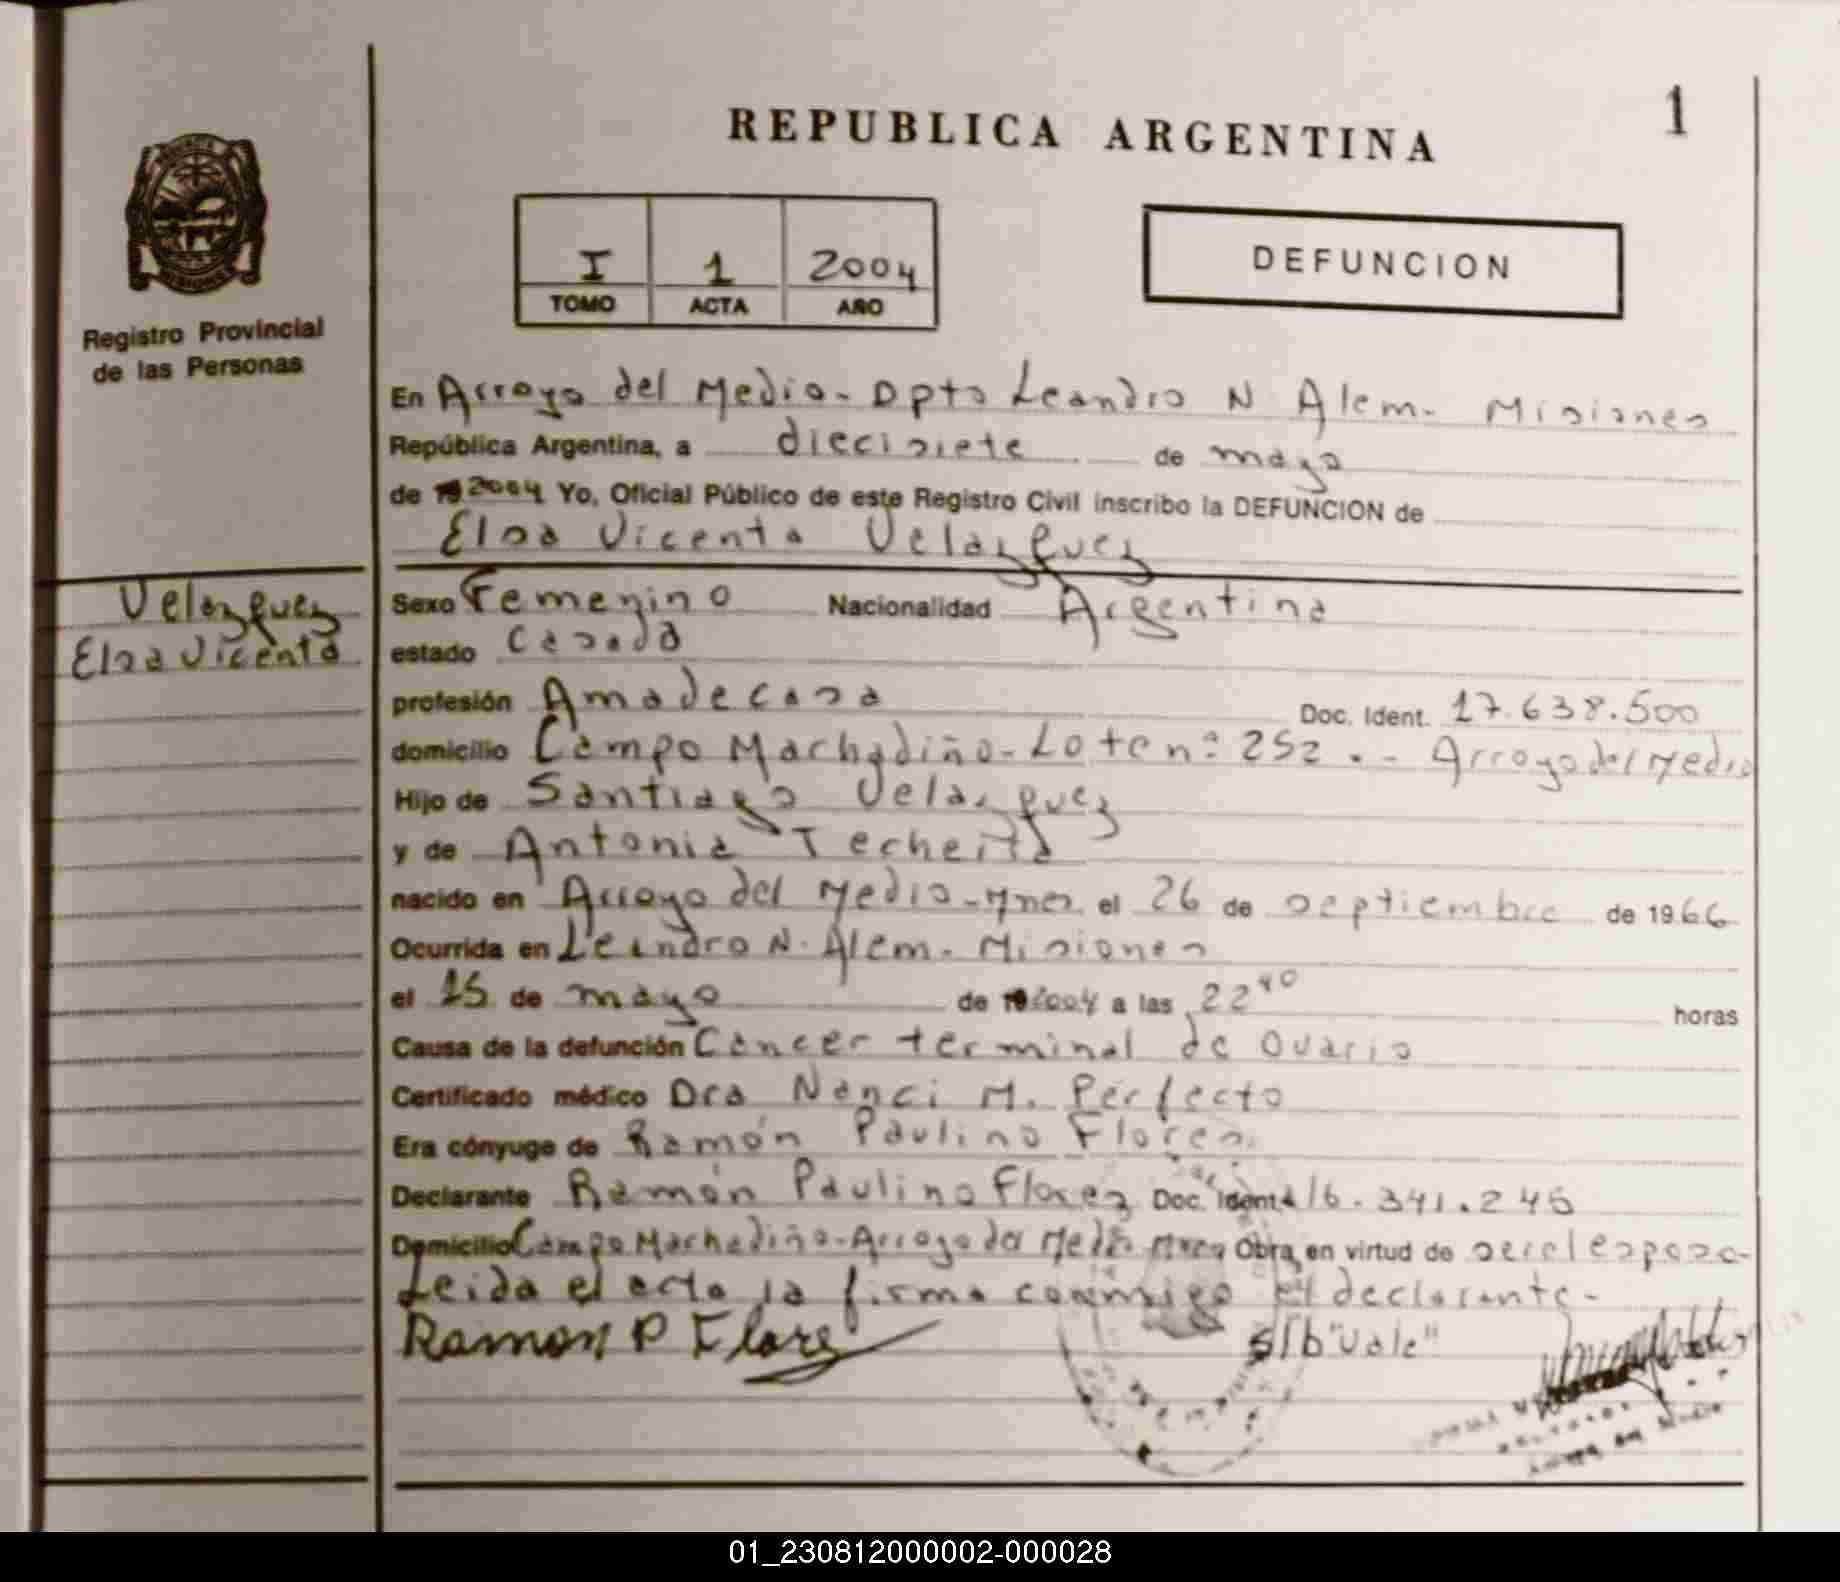 1
REPUBLICA ARGENTINA
I 1 2004
TOMO ACTA AÑO
DEFUNCION
Registro Provincial
de las Personas
En Arroyo del Medio - Dpto Leandro N Alem - Misiones
República Argentina, a diecisiete de mayo
de 19 2004 Yo, Oficial Público de este Registro Civil inscribo la DEFUNCION de
Elsa Vicenta Velazquez
Velazquez
Elsa Vicenta
Sexo Femenino Nacionalidad Argentina
estado Casada
profesión Ama de casa Doc. Ident. 17.638.500
domicilio Campo Machadiño - Lote nº 252 . - Arroyo del Medio
Hijo de Santiago Velazquez
y de Antonia Techeita
nacido en Arroyo del Medio - Mnes el 26 de septiembre de 1966
Ocurrida en Leandro N. Alem - Misiones
el 15 de mayo de 19 2004 a las 22 40 horas
Causa de la defunción Cancer terminal de Ovario
Certificado médico Dra Nanci M. Perfecto
Era cónyuge de Ramón Paulino Flores
Declarante Ramón Paulino Florez Doc. Ident. 16.341.245
Domicilio Campo Machadiño - Arroyo del Medio Mnes Obra en virtud de ser el esposo -
Leida el acta la firma conmigo el declarante -
Ramon P Flores
s/b "Vale"
01_230812000002-000028